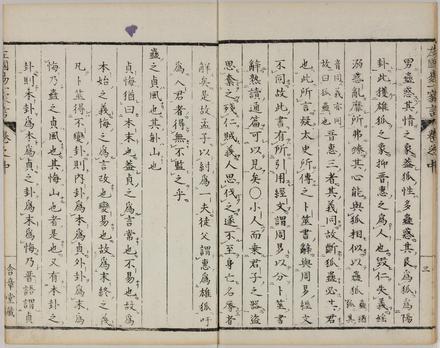 男蠱惑其情之象蓋狐性多蠱惑其艮爲狐爲陽
卦此獲雄狐之象抑晉惠之爲人也毀仁失義婬
溺惑亂靡所弗爲其心能與狐相似以蠱
音同義亦同故曰狐蠱也晉惠三者其義同故斷狐蠱必其君
也此所言疑太史所傳之卜筮書辭與周易繇文
不同故此書有所引用經史謂周易以分卜筮書
辭熟讀通篇可以見矣○小人而乘君子之器盜
思奪之殘仁賊義人思伐之遂不至身亡名辱者
三
鮮矣是故孟子以紂爲一夫徒父謂惠爲雄狐吁
爲人君者得無不監之乎
蠱之貞風也其悔山也
貞悔猶曰本末也蓋貞之爲言常也不易也故爲
本始之義悔之爲言改也變易也故爲末終之義
凡卜筮得不變卦則内卦爲本爲貞外卦爲末爲
悔乃蠱之貞風也其悔山也者是也又有本卦之
卦則本卦爲本爲貞之卦爲末爲悔乃晉語謂貞
卷之中
含章堂藏